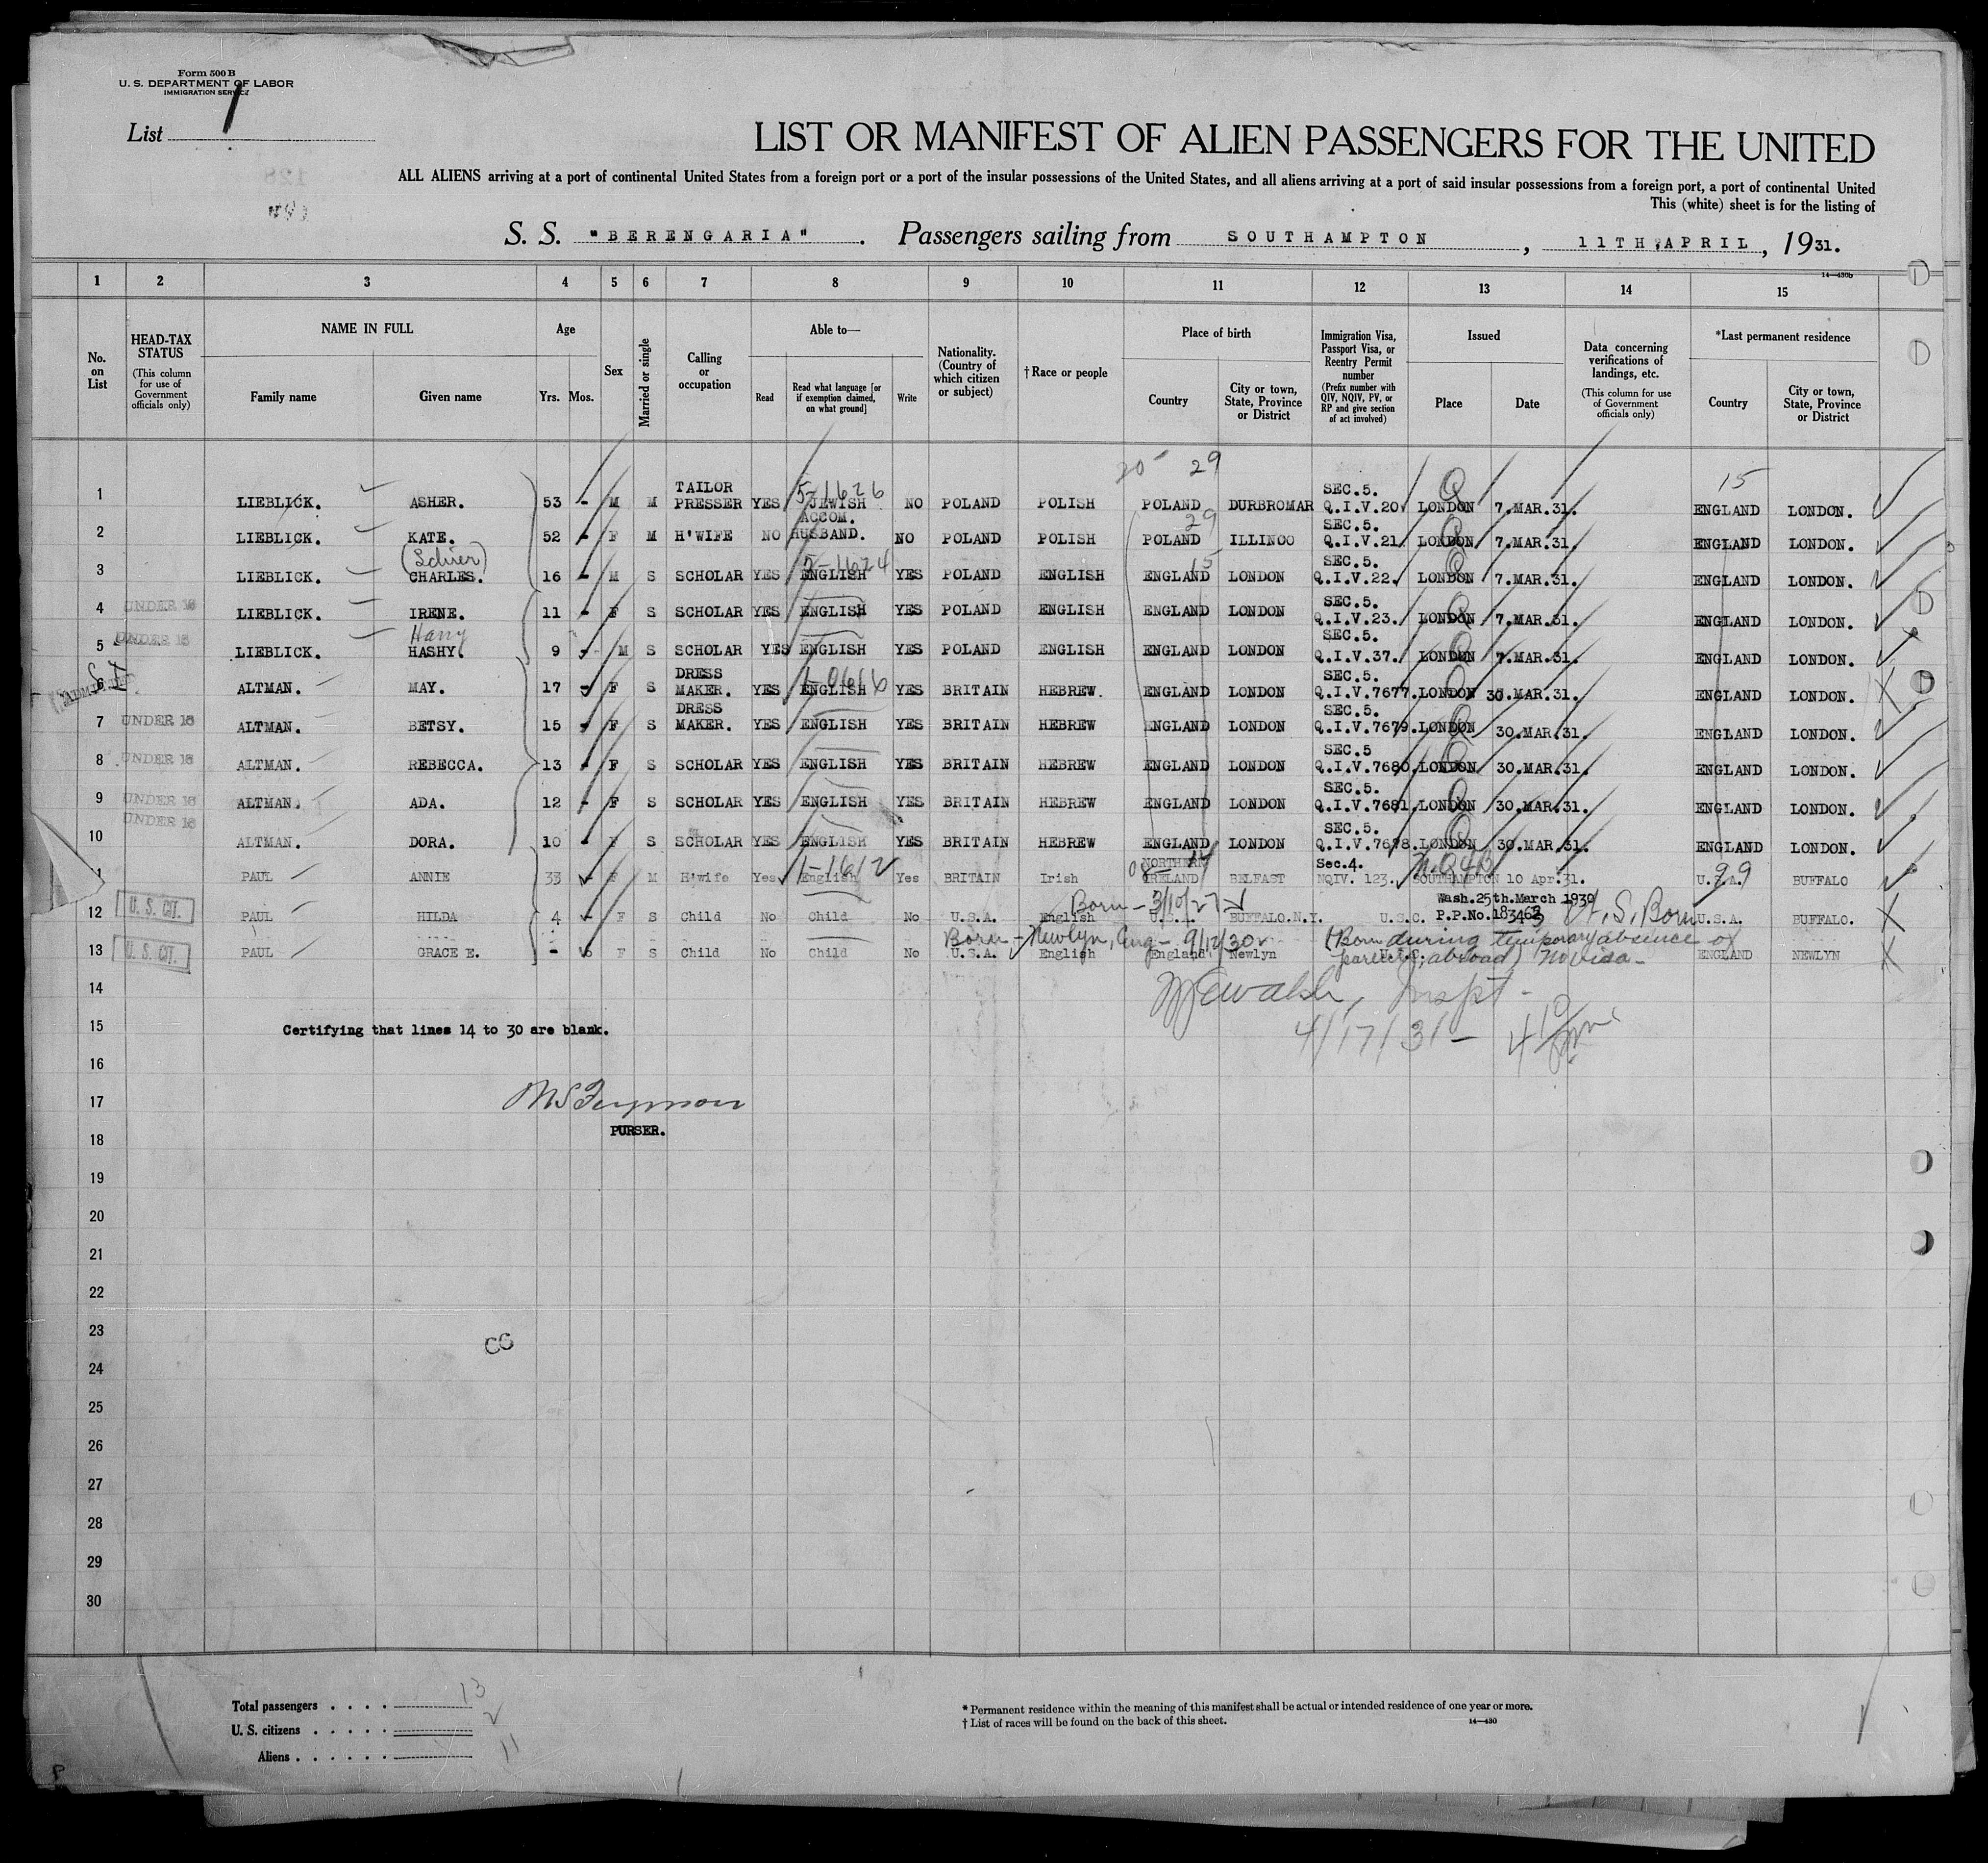 Form 500 B
U. S. DEPARTMENT OF LABOR
IMMIGRATION SERVICE
List 1
LIST OR MANIFEST OF ALIEN PASSENGERS FOR THE UNITED
ALL ALIENS arriving at a port of continental United States from a foreign port or a port of the insular possessions of the United States, and all aliens arriving at a port of said insular possessions from a foreign port, a port of continental United
This (white) sheet is for the listing of
S. S. "BERENGARIA". Passengers sailing from SOUTHAMPTON, 11TH, APRIL, 1931.
14—430b
1 2 3 4 5 6 7 8 9 10 11 12 13 14 15
No. on List
HEAD-TAX STATUS (This column for use of Government officials only)
NAME IN FULL Family name Given name
Age Yrs. Mos.
Sex
Married or single
Calling or occupation
Able to— Read Read what language [or if exemption claimed, on what ground] Write
Nationality. (Country of which citizen or subject)
† Race or people
Place of birth Country City or town, State, Province or District
Immigration Visa, Passport Visa, or Reentry Permit number (Prefix number with QIV, NQIV, PV, or RP and give section of act involved)
Issued Place Date
Data concerning verifications of landings, etc. (This column for use of Government officials only)
*Last permanent residence Country City or town, State, Province or District
20 29 15
1 LIEBLICK. ASHER. 53 - M M TAILOR PRESSER YES 5-1626 JEWISH NO POLAND POLISH POLAND DURBROMAR SEC.5. Q.I.V.20 LONDON 7.MAR.31. ENGLAND LONDON.
2 LIEBLICK. KATE. 52 - F M H'WIFE NO ACCOM. HUSBAND. NO POLAND POLISH 29 POLAND ILLINOO SEC.5. Q.I.V.21 LONDON 7.MAR.31. ENGLAND LONDON.
3 LIEBLICK. CHARLES. 16 - M S SCHOLAR YES 5-1624 ENGLISH YES POLAND ENGLISH 15 ENGLAND LONDON SEC.5. Q.I.V.22. LONDON 7.MAR.31. ENGLAND LONDON.
4 UNDER 16 LIEBLICK. IRENE. 11 - F S SCHOLAR YES ENGLISH YES POLAND ENGLISH ENGLAND LONDON SEC.5. Q.I.V.23. LONDON 7.MAR.31. ENGLAND LONDON.
Harry
5 UNDER 16 LIEBLICK. HASHY. 9 - M S SCHOLAR YES ENGLISH YES POLAND ENGLISH ENGLAND LONDON SEC.5. Q.I.V.37. LONDON 7.MAR.31. ENGLAND LONDON.
6 ADMITTED ALTMAN. MAY. 17 - F S DRESS MAKER. YES 1-0616 ENGLISH YES BRITAIN HEBREW. ENGLAND LONDON SEC.5. Q.I.V.7677. LONDON 30.MAR.31. ENGLAND LONDON.
7 UNDER 16 ALTMAN. BETSY. 15 - F S DRESS MAKER. YES ENGLISH YES BRITAIN HEBREW ENGLAND LONDON SEC.5. Q.I.V.7679. LONDON 30.MAR.31. ENGLAND LONDON.
8 UNDER 16 ALTMAN. REBECCA. 13 - F S SCHOLAR YES ENGLISH YES BRITAIN HEBREW ENGLAND LONDON SEC.5 Q.I.V.7680. LONDON 30.MAR.31. ENGLAND LONDON.
9 UNDER 16 ALTMAN. ADA. 12 - F S SCHOLAR YES ENGLISH YES BRITAIN HEBREW ENGLAND LONDON SEC.5. Q.I.V.7681. LONDON 30.MAR.31. ENGLAND LONDON.
10 UNDER 16 ALTMAN. DORA. 10 - F S SCHOLAR YES ENGLISH YES BRITAIN HEBREW ENGLAND LONDON SEC.5. Q.I.V.7678. LONDON 30.MAR.31. ENGLAND LONDON.
PAUL ANNIE 33 F M H'wife Yes 1-1612 English Yes BRITAIN Irish NORTHERN IRELAND BELFAST Sec.4. NQIV. 123. SOUTHAMPTON 10 Apr.31. U.S.A. 99 BUFFALO
Born - 3/10/27 Wash.25th.March 1930
12 U. S. CIT. PAUL HILDA 4 - F S Child No Child No U.S.A. English U.S.A. BUFFALO.N.Y. U.S.C. P.P.No.183463 U.S. Born U.S.A. BUFFALO.
Born - Newlyn, Eng - 9/12/30 (Born during temporary absence of
13 U. S. CIT. PAUL GRACE E. - 6 F S Child No Child No U.S.A. English England Newlyn parents, abroad) No visa - ENGLAND NEWLYN
14
Inspt -
15 Certifying that lines 14 to 30 are blank. 4/17/31 -
16
17
PURSER.
18
19
20
21
22
23
CG
24
25
26
27
28
29
30
Total passengers . . . . 13
U. S. citizens . . . . . 2
Aliens . . . . . . 11
* Permanent residence within the meaning of this manifest shall be actual or intended residence of one year or more.
† List of races will be found on the back of this sheet. 14—430